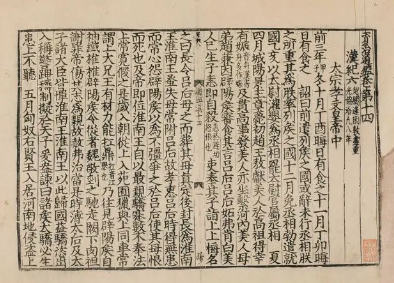 資治通鑑卷第十四
漢紀六
太宗孝文皇帝中
前三年冬十月丁酉晦日有食之十一月丁卯晦
日有食之 詔曰前遣列侯之國或辭未行丞相朕
之所重其爲朕率列侯之國十二月免丞相勃遣就
國乙亥以太尉灌嬰爲丞相罷太尉官屬丞相 夏
四月城陽景王章薨初趙王敖獻美人於高祖得幸
有娠及貫高事發美人亦坐繫河內美人母
弟趙兼因辟陽侯審食其言呂后呂后妬弗肯白美
人已生子恚即自殺吏奉其子詣上上悔名
之曰長令呂后母之而葬其母眞定後封長爲淮南
王淮南王蚤失母常附呂后故孝惠呂后時得無患
而常心怨辟陽侯以爲不彊爭之於呂后使其母恨
而死也及帝即位淮南王自以最親驕蹇數不奉法
上常寬假之是歲入朝從上入苑囿獵與上同車常
謂上大兄王有材力能扛鼎乃往見辟陽侯自
袖鐵椎椎辟陽侯令從者魏敬剄之馳走闕下肉袒
謝罪帝傷其志爲親故赦弗治當是時薄太后及太
子諸大臣皆憚淮南王淮南王以此歸國益驕恣出
入稱警蹕稱制擬於天子袁盎諫曰諸侯太驕必生
患上不聽 五月匈奴右賢王入居河南地侵盜上